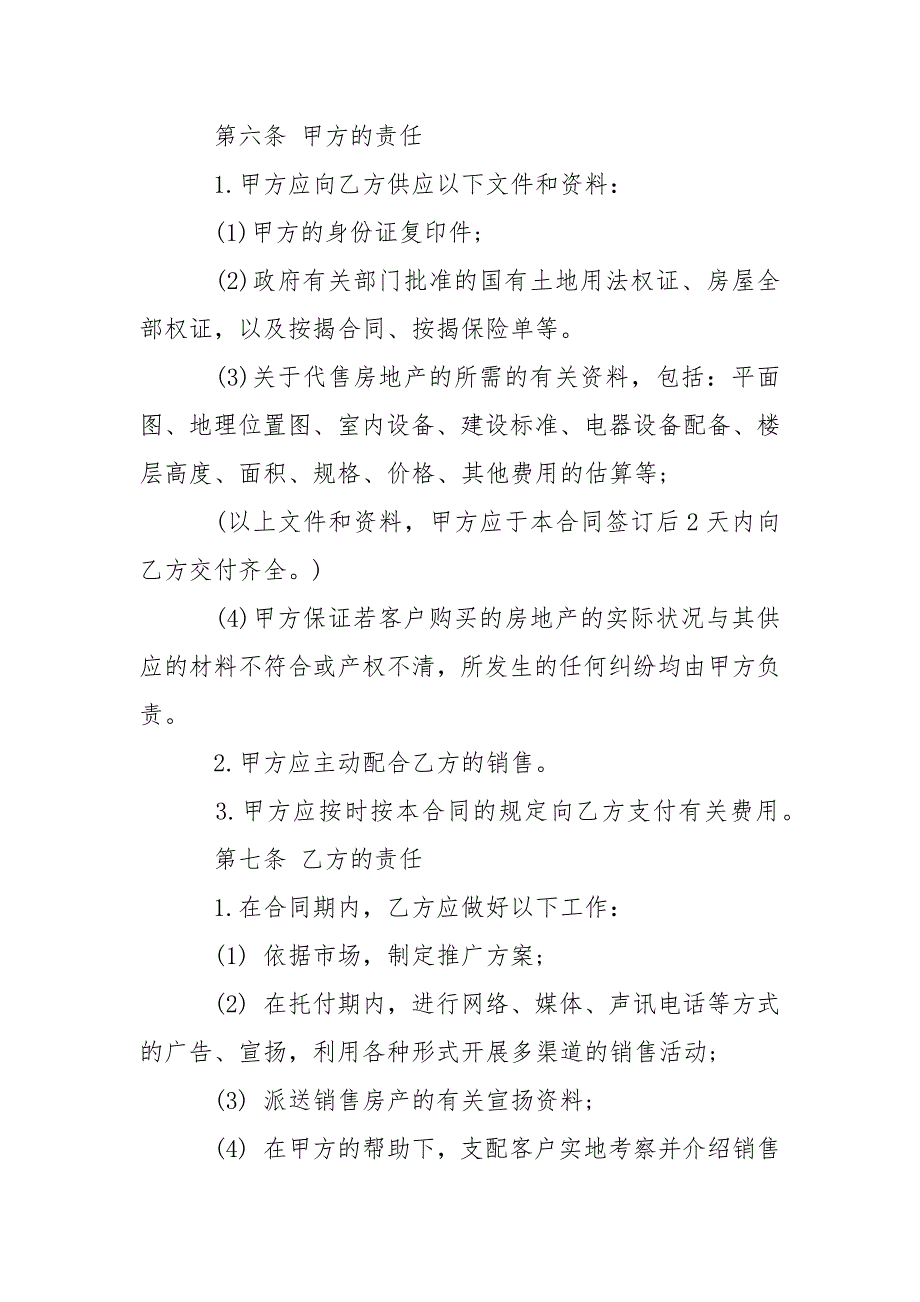 第六条 甲方的责任
1.甲方应向乙方供应以下文件和资料：
(1)甲方的身份证复印件;
(2)政府有关部门批准的国有土地用法权证、房屋全
部权证，以及按揭合同、按揭保险单等。
(3)关于代售房地产的所需的有关资料，包括：平面
图、地理位置图、室内设备、建设标准、电器设备配备、楼
层高度、面积、规格、价格、其他费用的估算等;
(以上文件和资料，甲方应于本合同签订后2天内向
乙方交付齐全。)
(4)甲方保证若客户购买的房地产的实际状况与其供
应的材料不符合或产权不清，所发生的任何纠纷均由甲方负
责。
2.甲方应主动配合乙方的销售。
3.甲方应按时按本合同的规定向乙方支付有关费用。
第七条 乙方的责任
1.在合同期内，乙方应做好以下工作：
(1) 依据市场，制定推广方案;
(2) 在托付期内，进行网络、媒体、声讯电话等方式
的广告、宣扬，利用各种形式开展多渠道的销售活动;
(3) 派送销售房产的有关宣扬资料;
(4) 在甲方的帮助下，支配客户实地考察并介绍销售